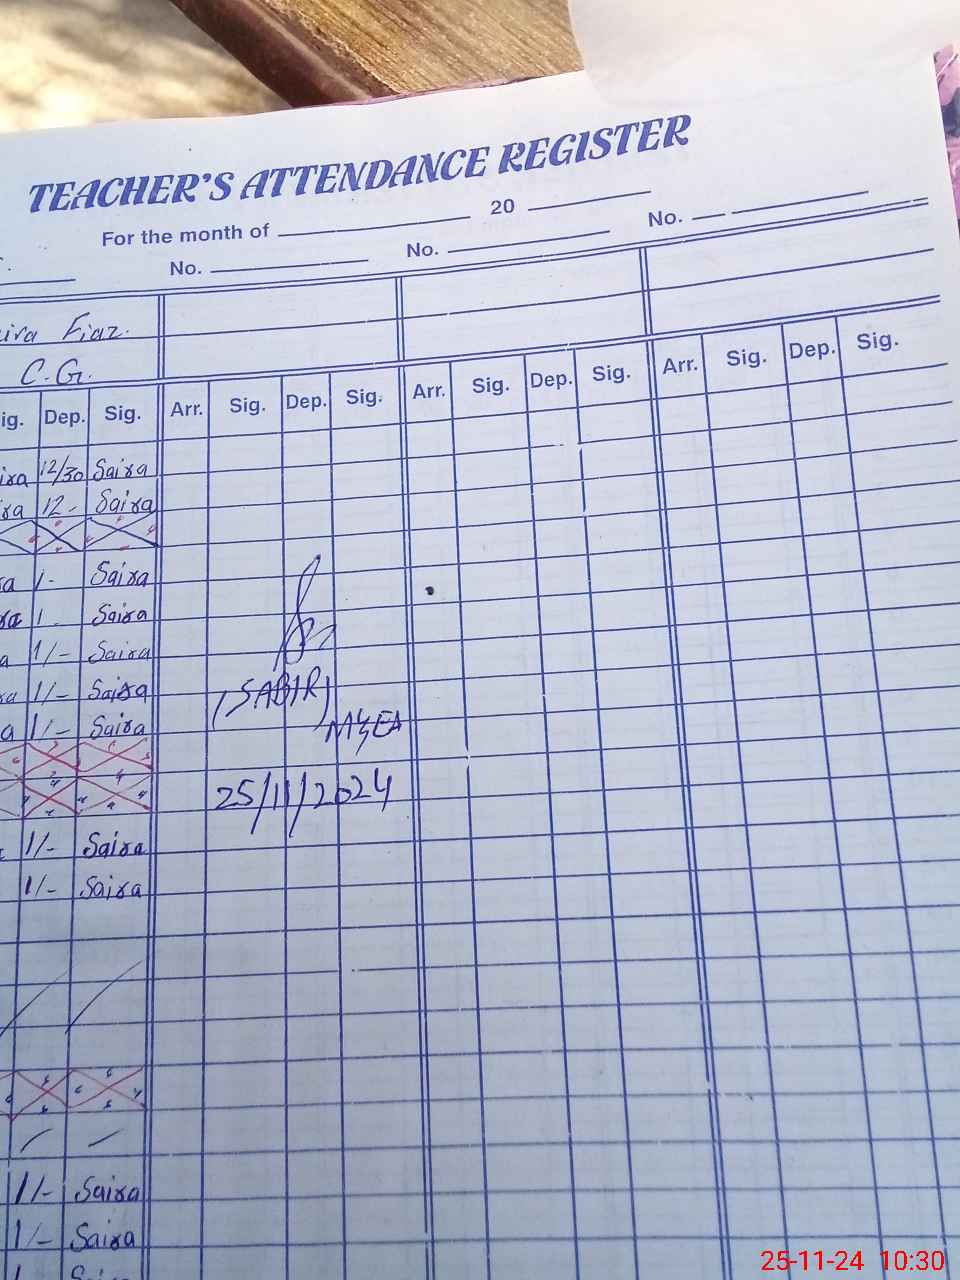 TEACHER'S ATTENDANCE REGISTER
For the month of 20
No. No. No.
Fiaz.
C.G.
Dep. Sig. Arr. Sig. Dep. Sig. Arr. Sig. Dep. Sig. Arr. Sig. Dep. Sig.
12/30 Saira
12 - Saira
1 - Saira
1 Saira
1/- Saira
1/- Saira
(SABIR)
1/- Saira
M&EA
25/11/2024
1/- Saira
1/- Saira
1/- Saira
1/- Saira
25-11-24 10:30